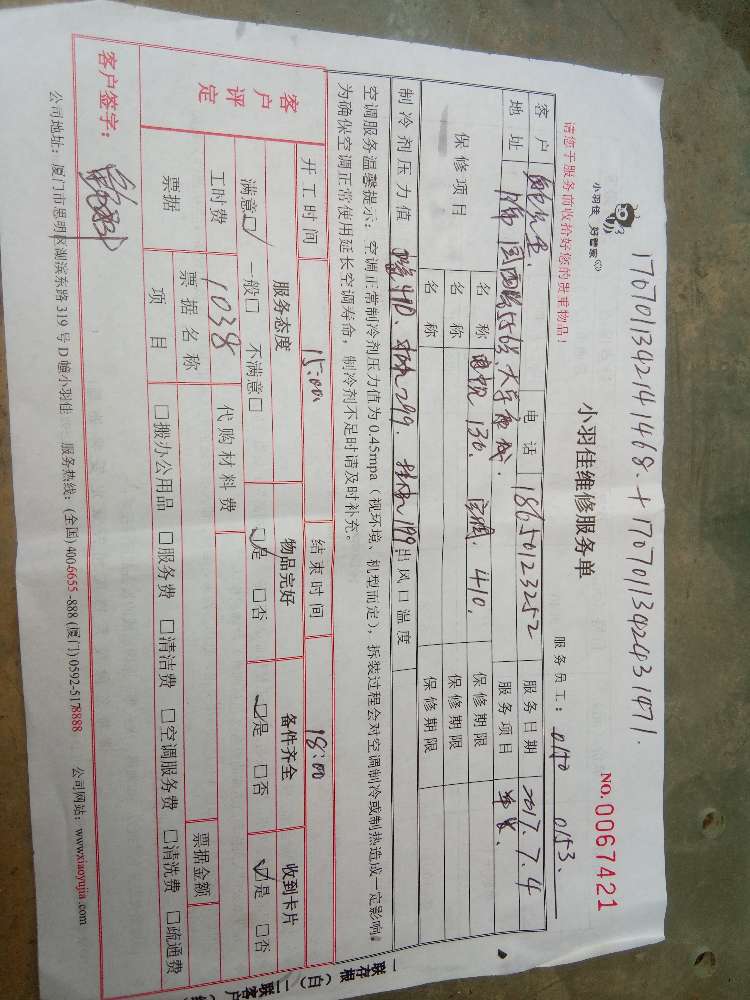 17070113421468.+17070113424031471.
小羽佳 好管家
小羽佳维修服务单
NO.0067421
请您于服务前收拾好您的贵重物品！
服务员工：0140 0153.
客户 电话 18650123252 服务日期 2017.7.4
地址 服务项目
保修项目 名称 130. 410. 保修期限
名称 保修期限
名称 保修期限
制冷剂压力值 410. 299. 199 出风口温度
空调服务温馨提示：空调正常制冷剂压力值为0.45mpa（视环境、机型而定），拆装过程会对空调制冷或制热造成一定影响。
为确保空调正常使用延长空调寿命，制冷剂不足时请及时补充。
客户评定
开工时间 15:00 结束时间 18:00
服务态度 物品完好 备件齐全 收到卡片
满意☑ 一般□ 不满意□ ☑是 □否 ☑是 □否 ☑是 □否
工时费 1038 代购材料费
票据 票据名称 票据金额
项目 □搬办公用品 □服务费 □清洁费 □空调服务费 □清洗费 □疏通费
客户签字：
公司地址：厦门市思明区湖滨东路319号D幢小羽佳 服务热线：(全国)400-6655-888 (厦门)0592-5178888 公司网站：www.xiaoyujia.com
一联存根(白) 二联客户